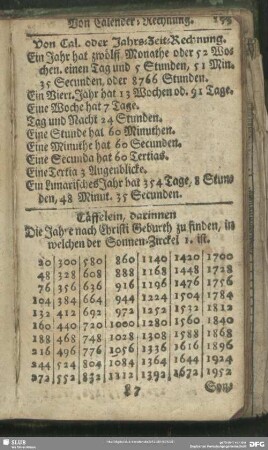 Von Calender-Rechnung. 155
Von Cal. oder Jahrs-Zeit-Rechnung.
Ein Jahr hat zwölff Monathe oder 52 Wo-
chen, einen Tag und 5 Stunden, 51 Min.
35 Secunden, oder 8766 Stunden.
Ein Viert. Jahr hat 13 Wochen od. 91 Tage.
Eine Woche hat 7 Tage.
Tag und Nacht 24 Stunden.
Eine Stunde hat 60 Minuthen.
Eine Minuthe hat 60 Secunden.
Eine Secunda hat 60 Tertias.
Eine Tertia 3 Augenblicke.
Ein Lunarisches Jahr hat 354 Tage, 8 Stun-
den, 48 Minut. 35 Secunden.
Täffelein, darinnen
Die Jahre nach Christi Geburth zu finden, in
welchen der Sonnen-Zirckel 1. ist.
20 300 580 860 1140 1420 1700
48 328 608 888 1168 1448 1728
76 356 636 916 1196 1476 1756
104 384 664 944 1224 1504 1784
132 412 692 972 1252 1532 1812
160 440 720 1000 1280 1560 1840
188 468 748 1028 1308 1588 1868
216 496 776 1056 1336 1616 1896
244 524 804 1084 1364 1644 1924
272 552 832 1112 1392 1672 1952
Son-
SLUB